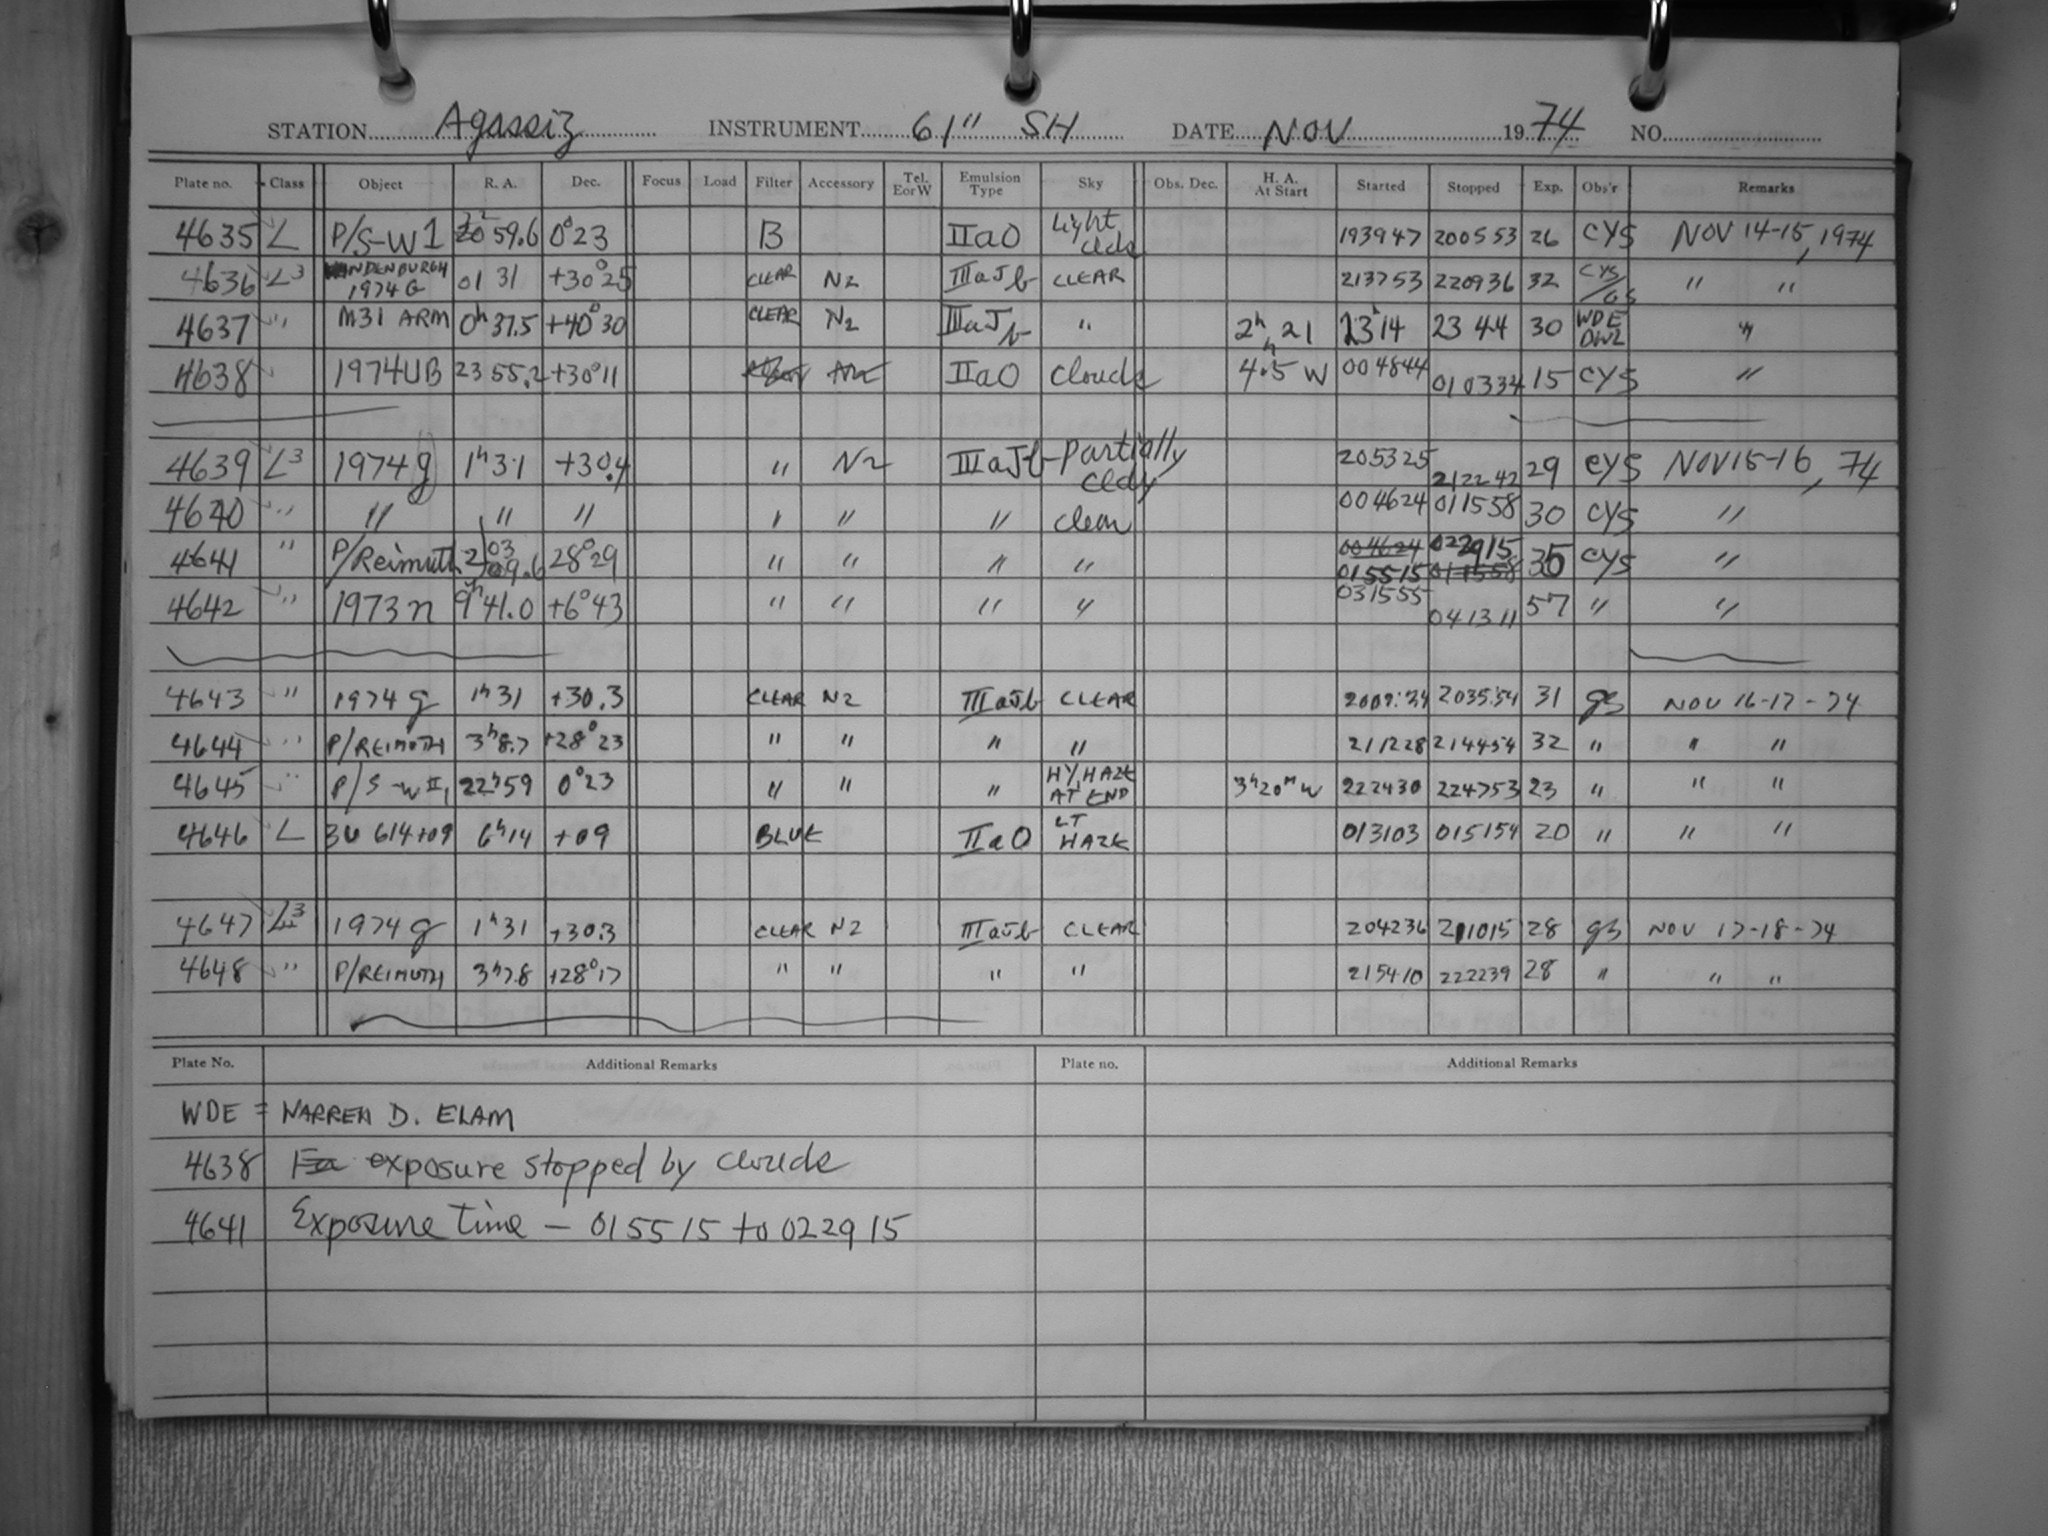 STATION Agassiz INSTRUMENT 61" SH DATE NOV 1974 NO.
Plate no. Class Object R. A. Dec. Focus Load Filter Accessory Tel. E or W Emulsion Type Sky Obs. Dec. H. A. At Start Started Stopped Exp. Obs'r Remarks
4635 L P/S-W1 59.6 0°23 B IIaO Light clds 193947 200553 26 CYS NOV 14-15, 1974
4636 L3 1974G 01 31 +30°25 CLEAR N2 IIIaJb CLEAR 213753 220936 32 CYS/GS " "
4637 " M31 ARM 0h 37.5 +40°30 CLEAR N2 IIIaJb " 2h 21 23h14 23 44 30 WDE "
4638 1974UB 23 55.2 +30°11 IIaO clouds 4h.5 W 004844 010334 15 CYS "
4639 L3 1974g 1h31 +30.4 " N2 IIIaJb partially cldy 205325 212242 29 CYS NOV 15-16, 74
4640 " " " " " " " clear 004624 011558 30 CYS "
4641 " P/Reimuth 03 09.6 28°29 " " " " 004624 015515 022915 011558 35 CYS "
4642 " 1973n 9h41.0 +6°43 " " " " 031555 041311 57 " "
4643 " 1974g 1h31 +30.3 CLEAR N2 IIIaJb CLEAR 2035:54 31 gs NOV 16-17-74
4644 " P/REIMUTH 3h8.7 +28°23 " " " " 211228 214454 32 " " "
4645 " P/S-W II, 22h59 0°23 " " " HY HAZE AT END 3h20m W 222430 224753 23 " " "
4646 L 3U 614+09 6h14 +09 BLUE IIaO LT HAZE 013103 015154 20 " " "
4647 L3 1974g 1h31 +30.3 CLEAR N2 IIIaJb CLEAR 204236 211015 28 gs NOV 17-18-74
4648 " P/REIMUTH 3h7.8 +28°17 " " " " 215410 222239 28 " " "
Plate No. Additional Remarks Plate no. Additional Remarks
WDE = WARREN D. ELAM
4638 exposure stopped by clouds
4641 Exposure Time - 015515 to 022915